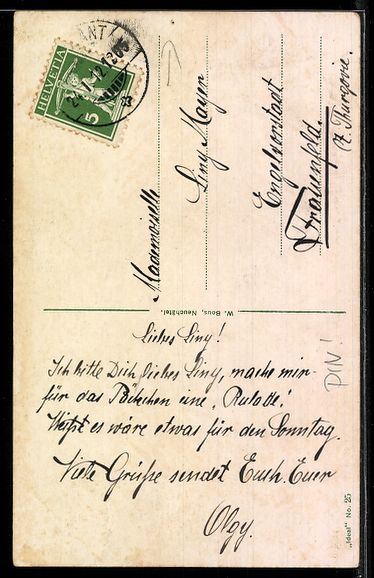 HELVETIA
5
Mademoiselle
Liny Mayer
Engelvorstadt
Frauenfeld.
Kt. Thurgovie.
W. Bous, Neuchâtel.
Liebes Liny!
Ich bitte Dich liebes Liny, mache mir
für das Päckchen eine
es wäre etwas für den Sonntag.
Viele Grüße sendet Euch. Euer
Olgy.
PIN!
„Ideal" No. 25